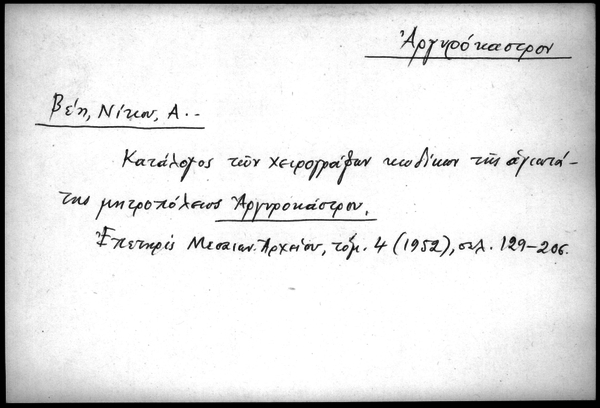 Ἀργυρόκαστρον
Βέη, Νίκου, Α.-
Κατάλογος τῶν χειρογράφων κωδίκων τῆς ἁγιωτά-
της μητροπόλεως Ἀργυροκάστρου.
Ἐπετηρὶς Μεσαιων. Ἀρχείου, τόμ. 4 (1952), σελ. 129-206.